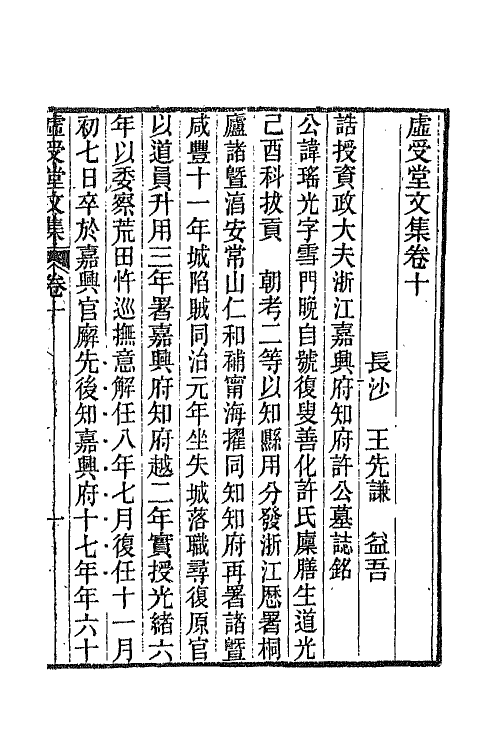 虛受堂文集卷十
長沙　王先謙　益吾
誥授資政大夫浙江嘉興府知府許公墓誌銘
公諱瑤光字雪門晚自號復叟善化許氏廩膳生道光
己酉科拔貢　朝考二等以知縣用分發浙江歷署桐
廬諸暨湻安常山仁和補甯海擢同知知府再署諸暨
咸豐十一年城陷賊同治元年坐失城落職尋復原官
以道員升用三年署嘉興府知府越二年實授光緒六
年以委察荒田忤巡撫意解任八年七月復任十一月
初七日卒於嘉興官廨先後知嘉興府十七年年六十
虛受堂文集　卷十　一